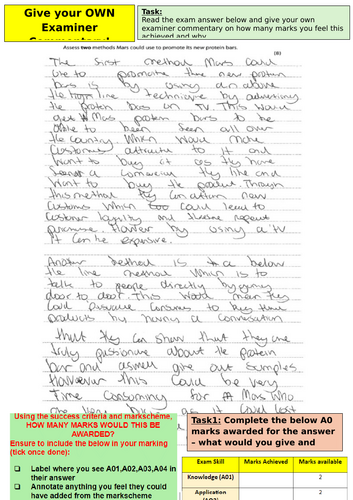 Give your OWN
Examiner
Commentary!
Task:
Read the exam answer below and give your own
examiner commentary on how many marks you feel this
achieved and why
Assess two methods Mars could use to promote its new protein bars.
(8)
The first method Mars could
use to promote the new protein
bars is by using an above
the line technique by advertising
the protein bars on TV. This would
get Mars protein bars to be
able to been seen all over
the country which would make
customers attracted to it and
want to buy it as they have
a commercial they like and
want to buy the product. Through
this method they can attain new
customs which could lead to
customer loyalty and increase repeat
purchase. However by using a TV
it can be expensive.
Another method is a below
the line method which is to
talk to people directly by going
door to door. This would mean they
could persuade consumers to buy their
products by having a conversation
that they can show that they are
truly passionate about the protein
bar and aswell give out samples.
However this could be very
time consuming for Mars who
as it could lost
Using the success criteria and markscheme,
HOW MANY MARKS WOULD THIS BE
AWARDED?
Ensure to include the below in your marking
(tick once done):
Label where you see A01,A02,A03,A04 in
their answer
Annotate anything you feel they could
have added from the markscheme
Task1: Complete the below A0
marks awarded for the answer
– what would you give and
Exam Skill Marks Achieved Marks available
Knowledge (A01) 2
Application
(A02) 2